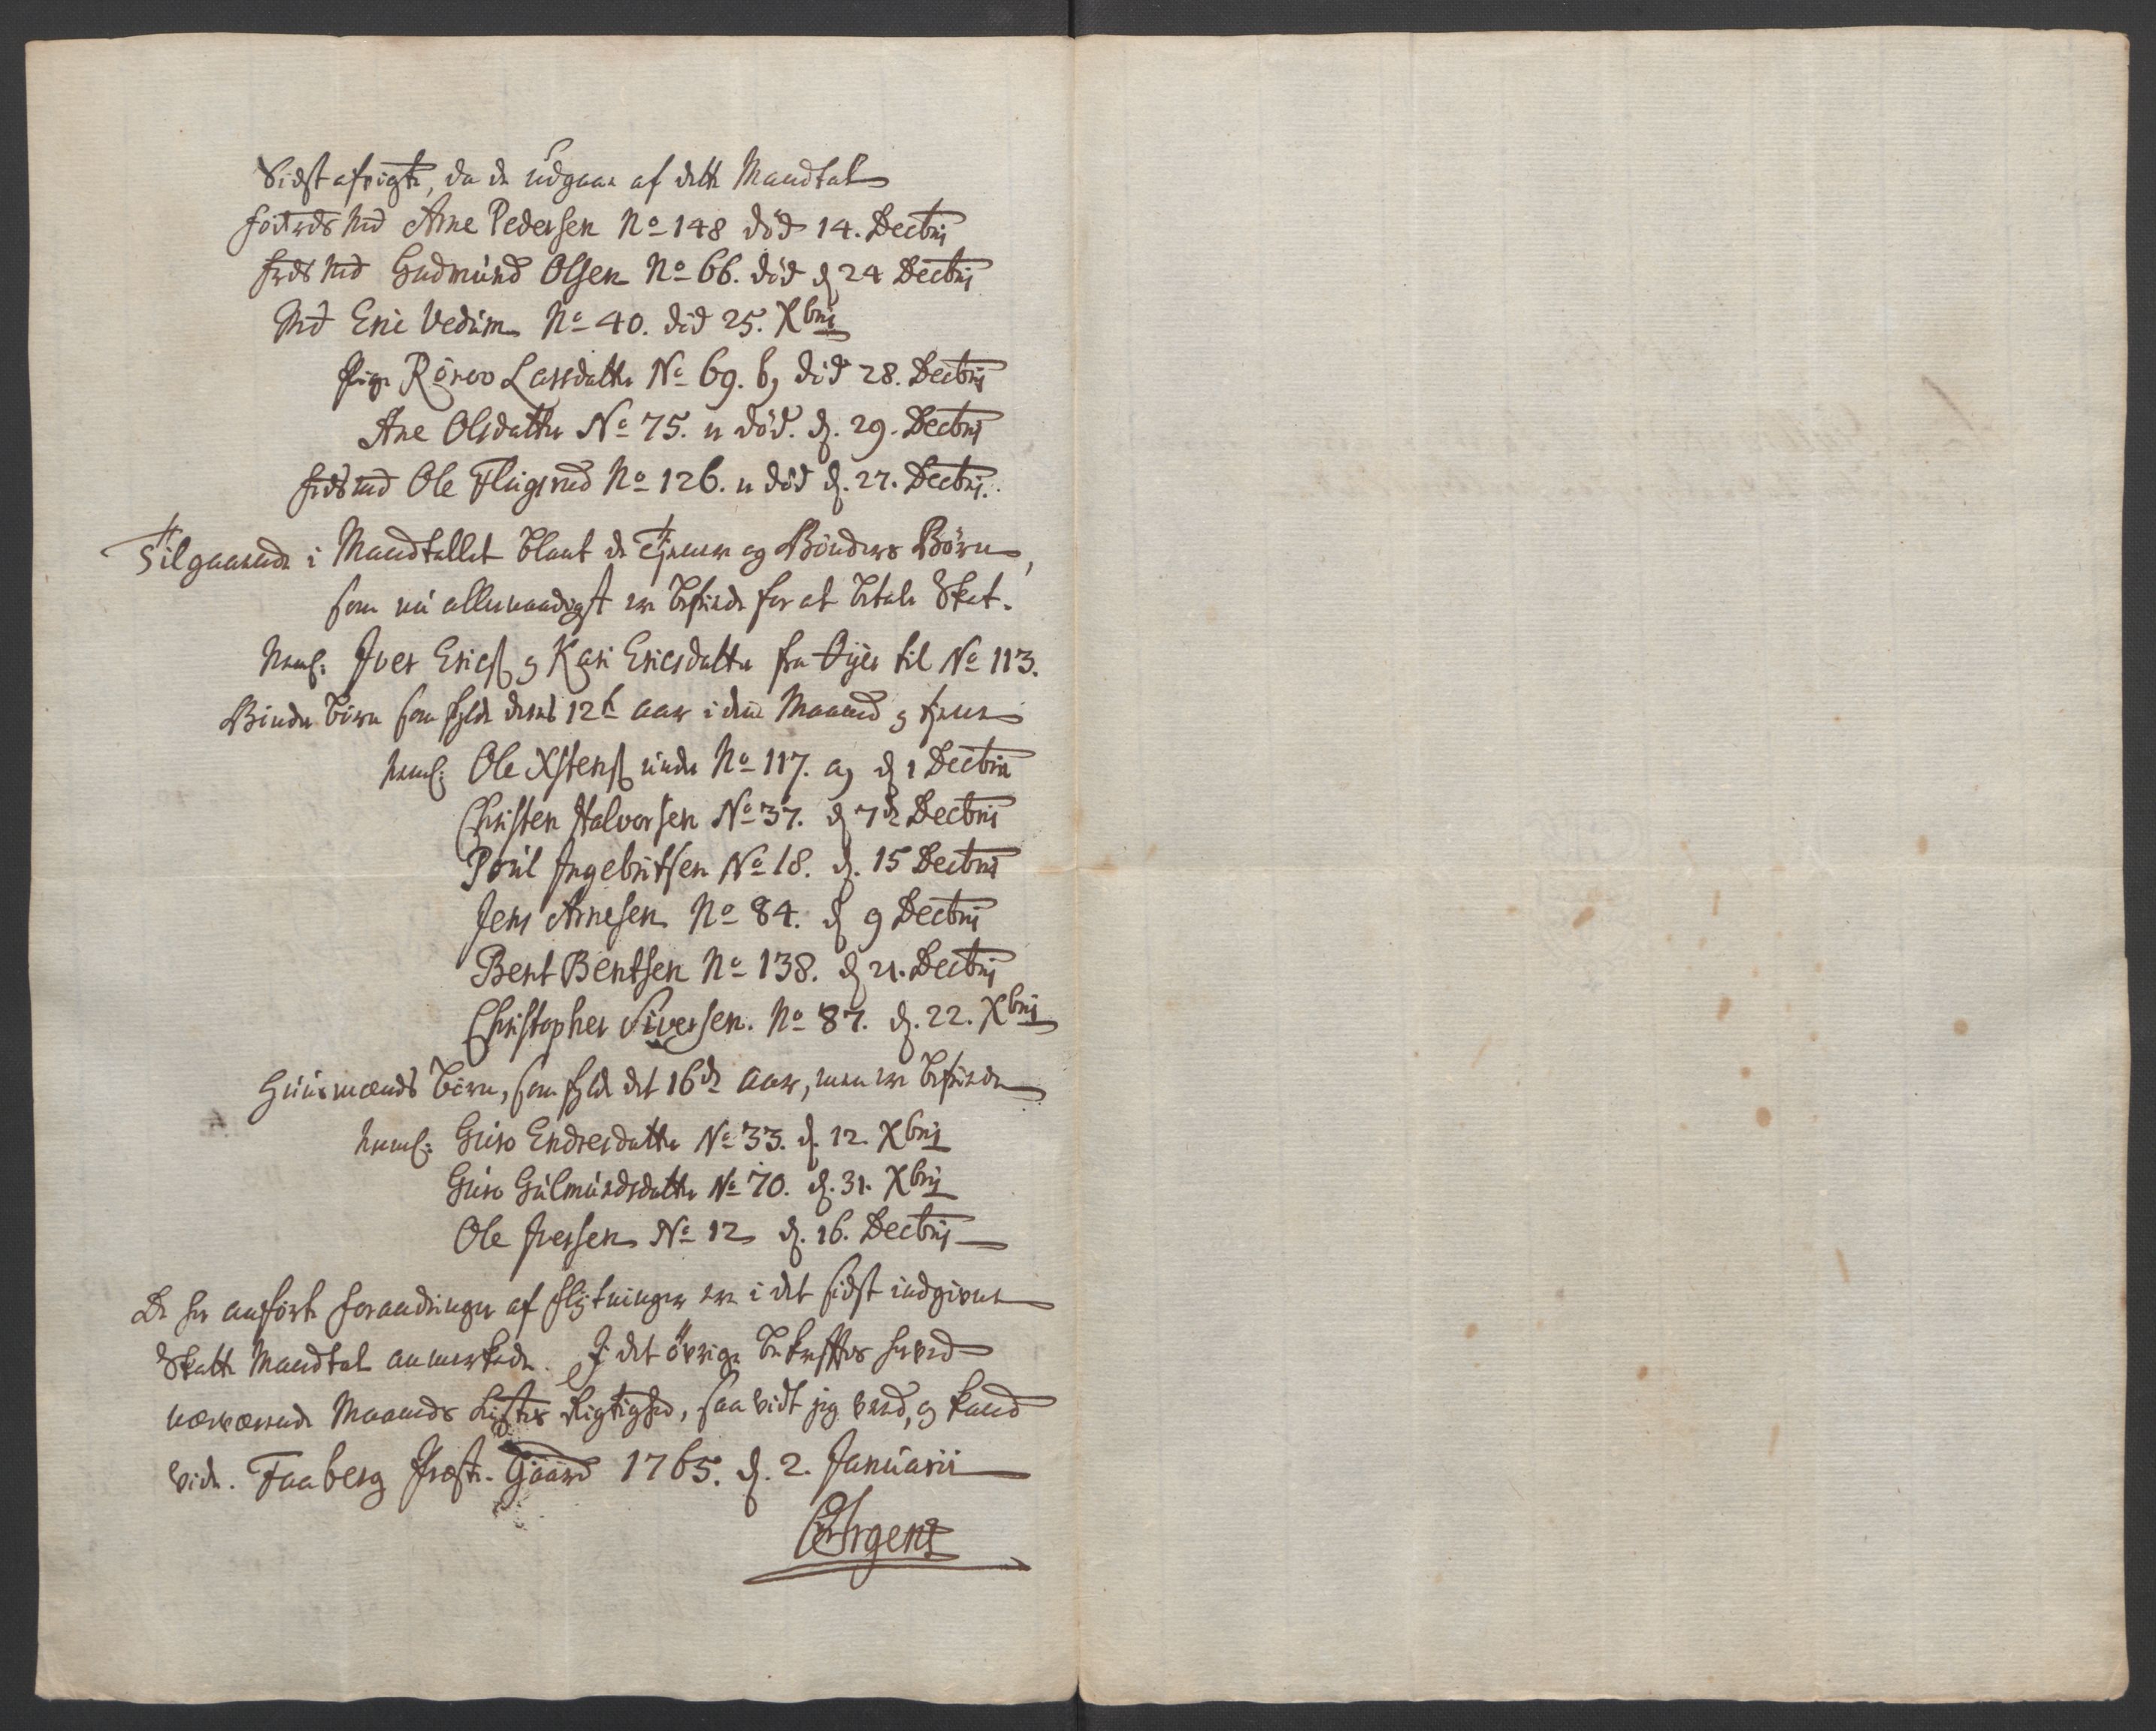 Sidst afvigte, da de udgaae af dette Mandtal
Arne Pedersen No 148 död 14. Decbris
Gudmund Olsen No 66. död d. 24 Decbris
Eric Vedum No 40. död 25. Xbris
Pige Rönov Larsdatter No 69. b, död 28. Decbris
Ane Olsdatter No 75. u död. d. 29. Decbris
Ole Flugsrud No 126. u död d. 27. Decbris.
Tilgaaende i Mandtallet blant de Tjenere og Bönders Börn,
som nu allernaadigst ere befundne for at betale Skat.
Neml: Iver Erics. og Kari Ericsdatter fra Öyer til No 113.
Bönder börn som fylde deres 12te aar i denne Maaned og tjener
neml: Ole Xstens. under No 117. a, d 1 Decbris
Christen Halvorsen No 37. d 7de Decbris
Poul Ingebritsen No 18. d. 15 Decbris
Jens Arnesen No 84. d 9 Decbris
Bent Bentsen No 138. d 21. Decbris
Christopher Siversen. No 87. d. 22. Xbris
Huusmænds börn, som fylde det 16de aar, men ere befundne
neml: Guro Endresdatter No 33. d. 12. Xbris
Guro Gulmundsdatter No 70. d. 31. Xbris
Ole Iversen No 12 d. 16. Decbris
De her anförte forandringer af flytninger ere i det sidst indgivne
Skatte Mandtal anmerkede. I det övrige bekræftes herved
nærværende Maaneds Listes Rigtighed, saa vidt jeg veed, og kand
vide. Faaberg Præste-Gaard 1765. d. 2. Januarii